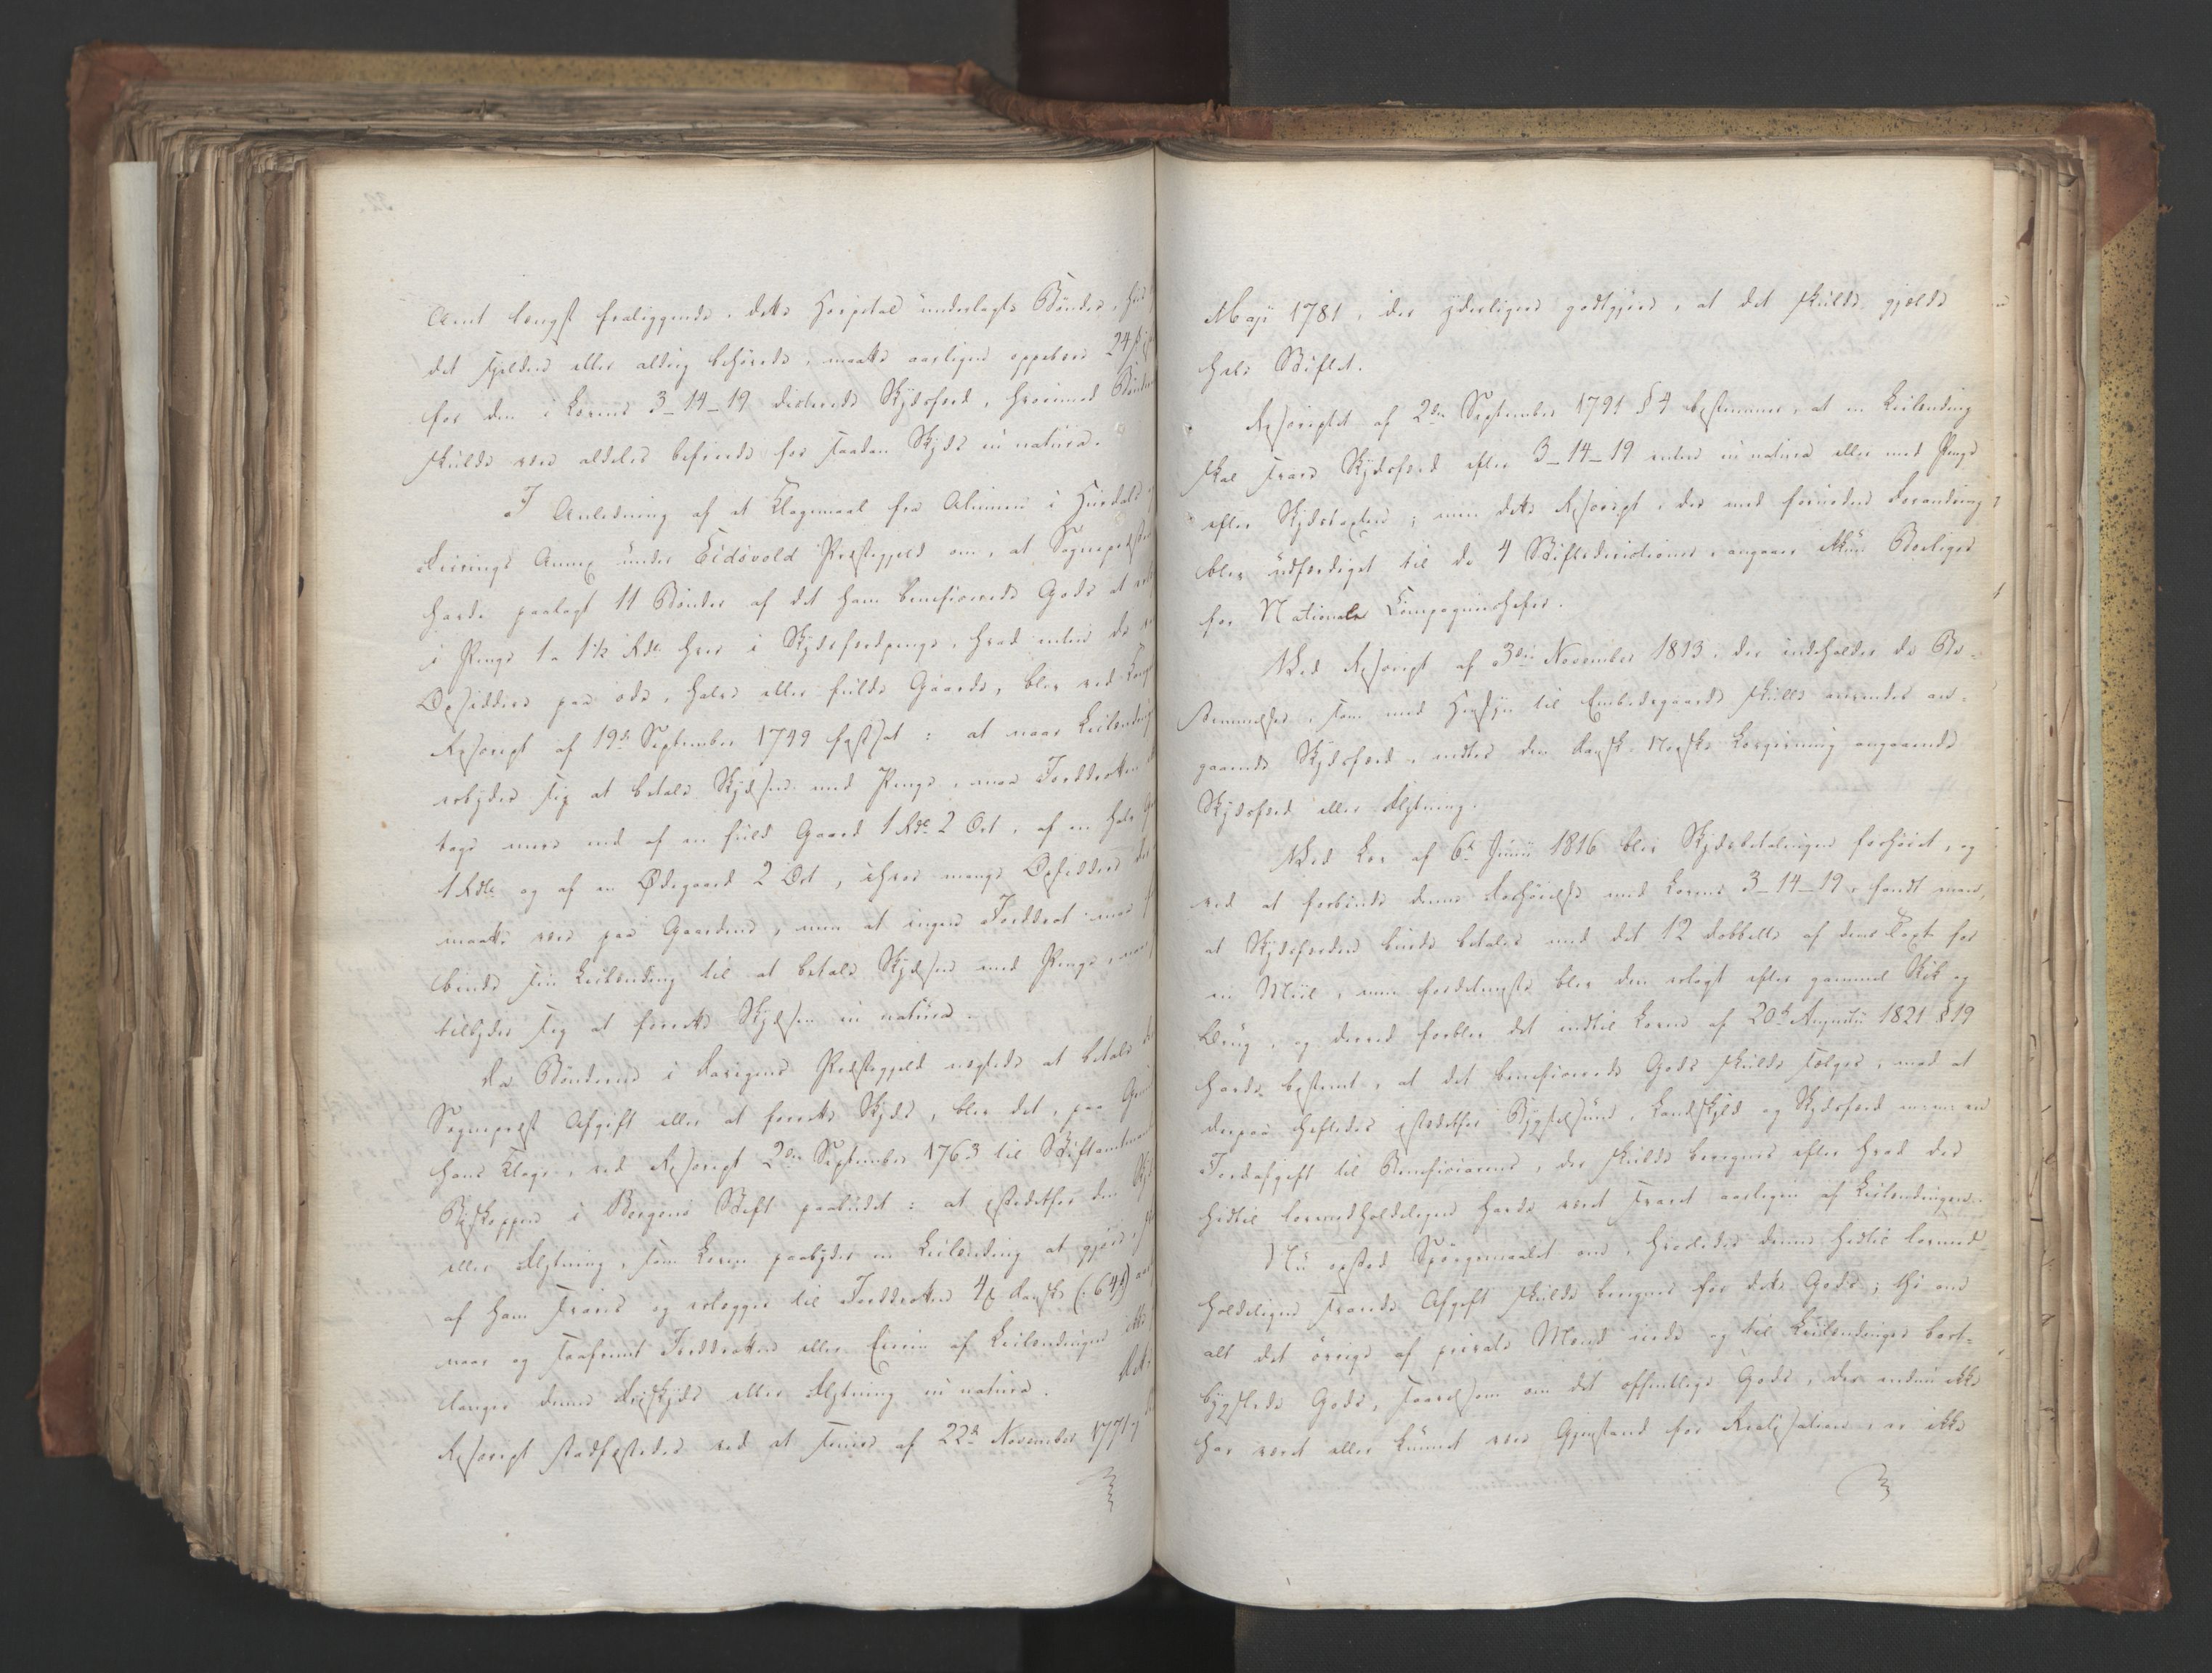 Amt længst fraliggende, dette Hospital underlagte Bønder, hvis
det sjelden eller aldrig behøvede, maatte aarligen oppebære 24 ß
for den i Lovens 3-14-19 dicterede Skydsfærd, hvorimod Bønderne
skulde være aldeles befriede for saadan Skyds in natura.
I Anledning af et Klagemaal fra Almuen i Hurdals
Feirings Annex under Eidsvold Præstegjeld om, at Sognepræsten
havde paalagt 11 Bønder af det ham beneficerede Gods at
i Penge 1 a 1½ Rdl. hver i Skydsfærdpenge, hvad enten de
Opsiddere paa øde, halve eller fulde Gaarde, blev ved
Rescript af 19de September 1749 fastsat: at naar Leilending
erbyder sig at betale Skydsen med Penge, maa Jorddrotten
tage mere end af en fuld Gaard 1 Rdlr. 2 Ort, af en halv
1 Rdlr. og af en Ødegaard 2 Ort, ihvor mange Opsiddere der
maatte være paa Gaarden, men at ingen Jorddrot maa
binde sin Leilending til at betale Skydsen med Penge, naar
tilbyder sig at forrette Skydsen in natura.
Da Bønderne i Davigens Præstegjeld nægtede at betale
Sognepræst Afgift eller at forrette Skyds, blev det, paa
hans Klage, ved Rescript 2den September 1763 til Stiftamtmand
Biskoppen i Bergens Stift paabudet: at istedetfor den
eller Flytning, som Loven paabyder en Leilending at gjøre,
af ham svares og erlægges til Jorddrotten 4 ß danske (: 64 ß)
naar og saafremt Jorddrotten eller Eieren af Leilendingen ikke
langer denne Friskyds eller Flytning in natura. Dette
Rescript stadfæstedes ved et senere af 22de November 1771,
Maji 1781, der yderligere godtgjøre, at det skulde gjelde
hele Stiftet.
Rescriptet af 2den September 1791 § 4 bestemmer, at en Leilending
skal svare Skydsfærd efter 3-14-19 enten in natura eller med Penge
efter Skydstaxten; men dette Rescript, der med fornøden Forandring
blev udfærdiget til de 4 Stiftsdirectioner, angaaer kun Boeliger
for Nationale Compagniechefer.
Ved Rescript af 3die November 1813, der indeholder de Be-
stemmelser, som med Hensyn til Embedsgaarde skulle anvendes an-
gaaende Skydsfærd, endtes den dansk-norske Lovgivning angaaende
Skydsfærd eller Flytning.
Ved Lov af 6te Junii 1816 blev Skydsbetalingen forhøiet, og
ved at forbinde denne Forhøielse med Lovens 3-14-19, fandt man,
at Skydsfærden burde betales med det 12 dobbelte af dens Taxt for
en Miil, men fordetmeste blev den erlagt efter gammel Skik og
Brug, og derved forblev det indtil Loven af 20de Augustii 1821 § 19
havde bestemt, at det beneficerede Gods skulde sælges, mod at
derpaa heftedes istedetfor Bygselsum, Landskyld og Skydsfærd m: m: en
Jordafgift til Beneficiarene, der skulde beregnes efter hvad der
hidtil lovmedholdeligen havde været svaret aarligen af Leilendingen.
Nu opstod Spørgsmaalet om, hvorledes denne hidtil lovmed-
holdeligen svarede Afgift skulde beregnes for dette Gods; thi om
alt det øvrige af private Mænd eiede og til Leilendinger bort-
bygslede Gods, saavelsom om det offentlige Gods, der endnu ikke
har været eller kunnet være Gjenstand for Realisation, er ikke